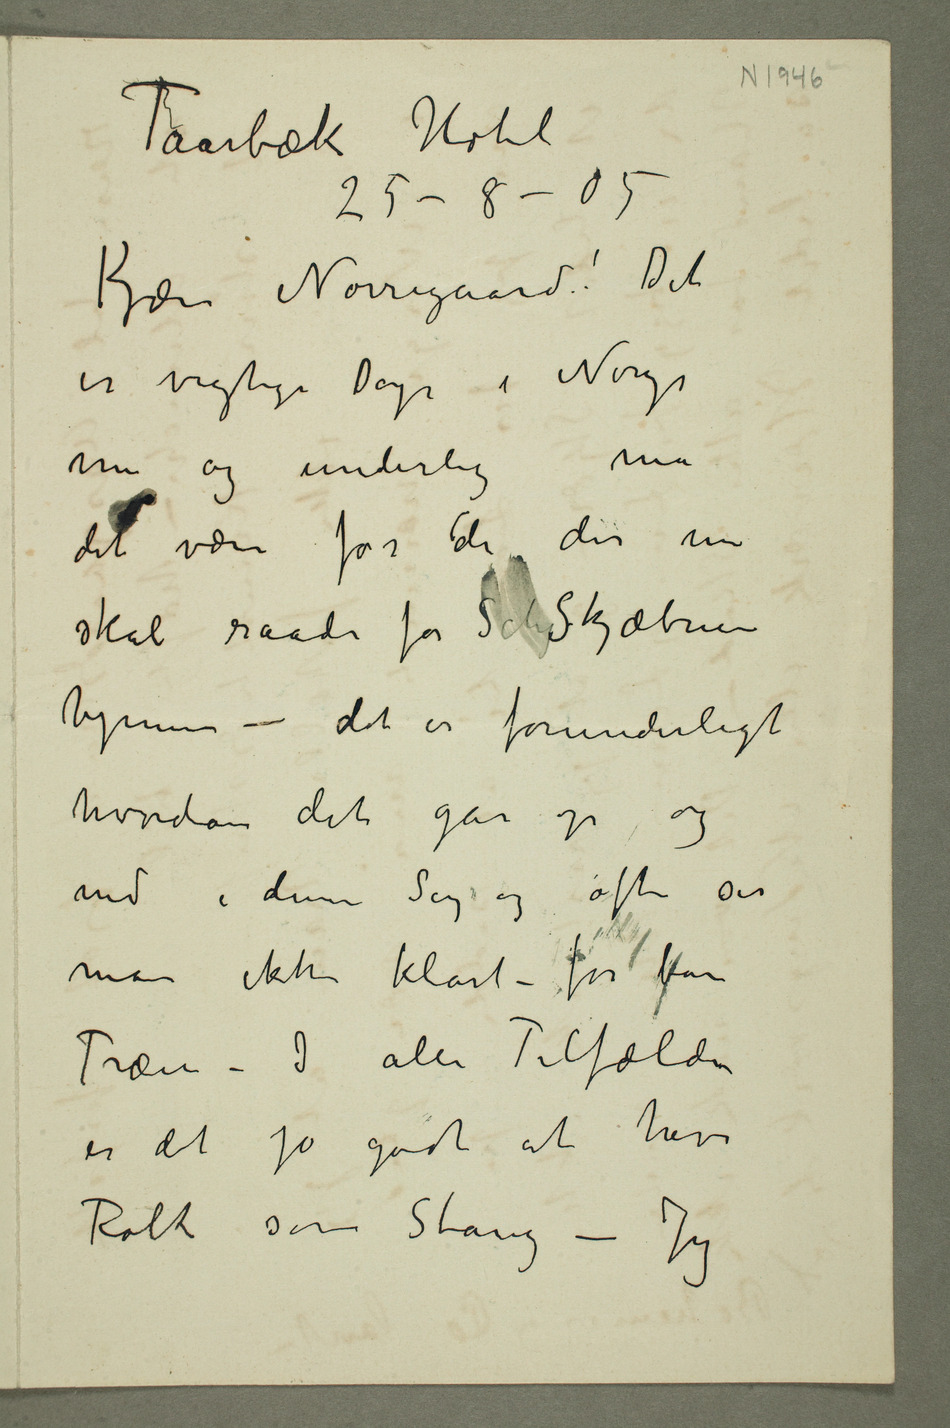 N1946
Taarbæk Hotel
25 – 8 – 05
Kjære Nørregaard! Det
er vigtige Dage i Norge
nu og underlig ma
det være for de der nu
skal raade for Skjæbnen
hjemme – det er forunderligt
hvordan det går op og
ned i denne Sag og ofte ser
man ikke klart – for bare
Træer – I alle Tilfælde
er det jo godt at have
Folk som Stang – Jeg